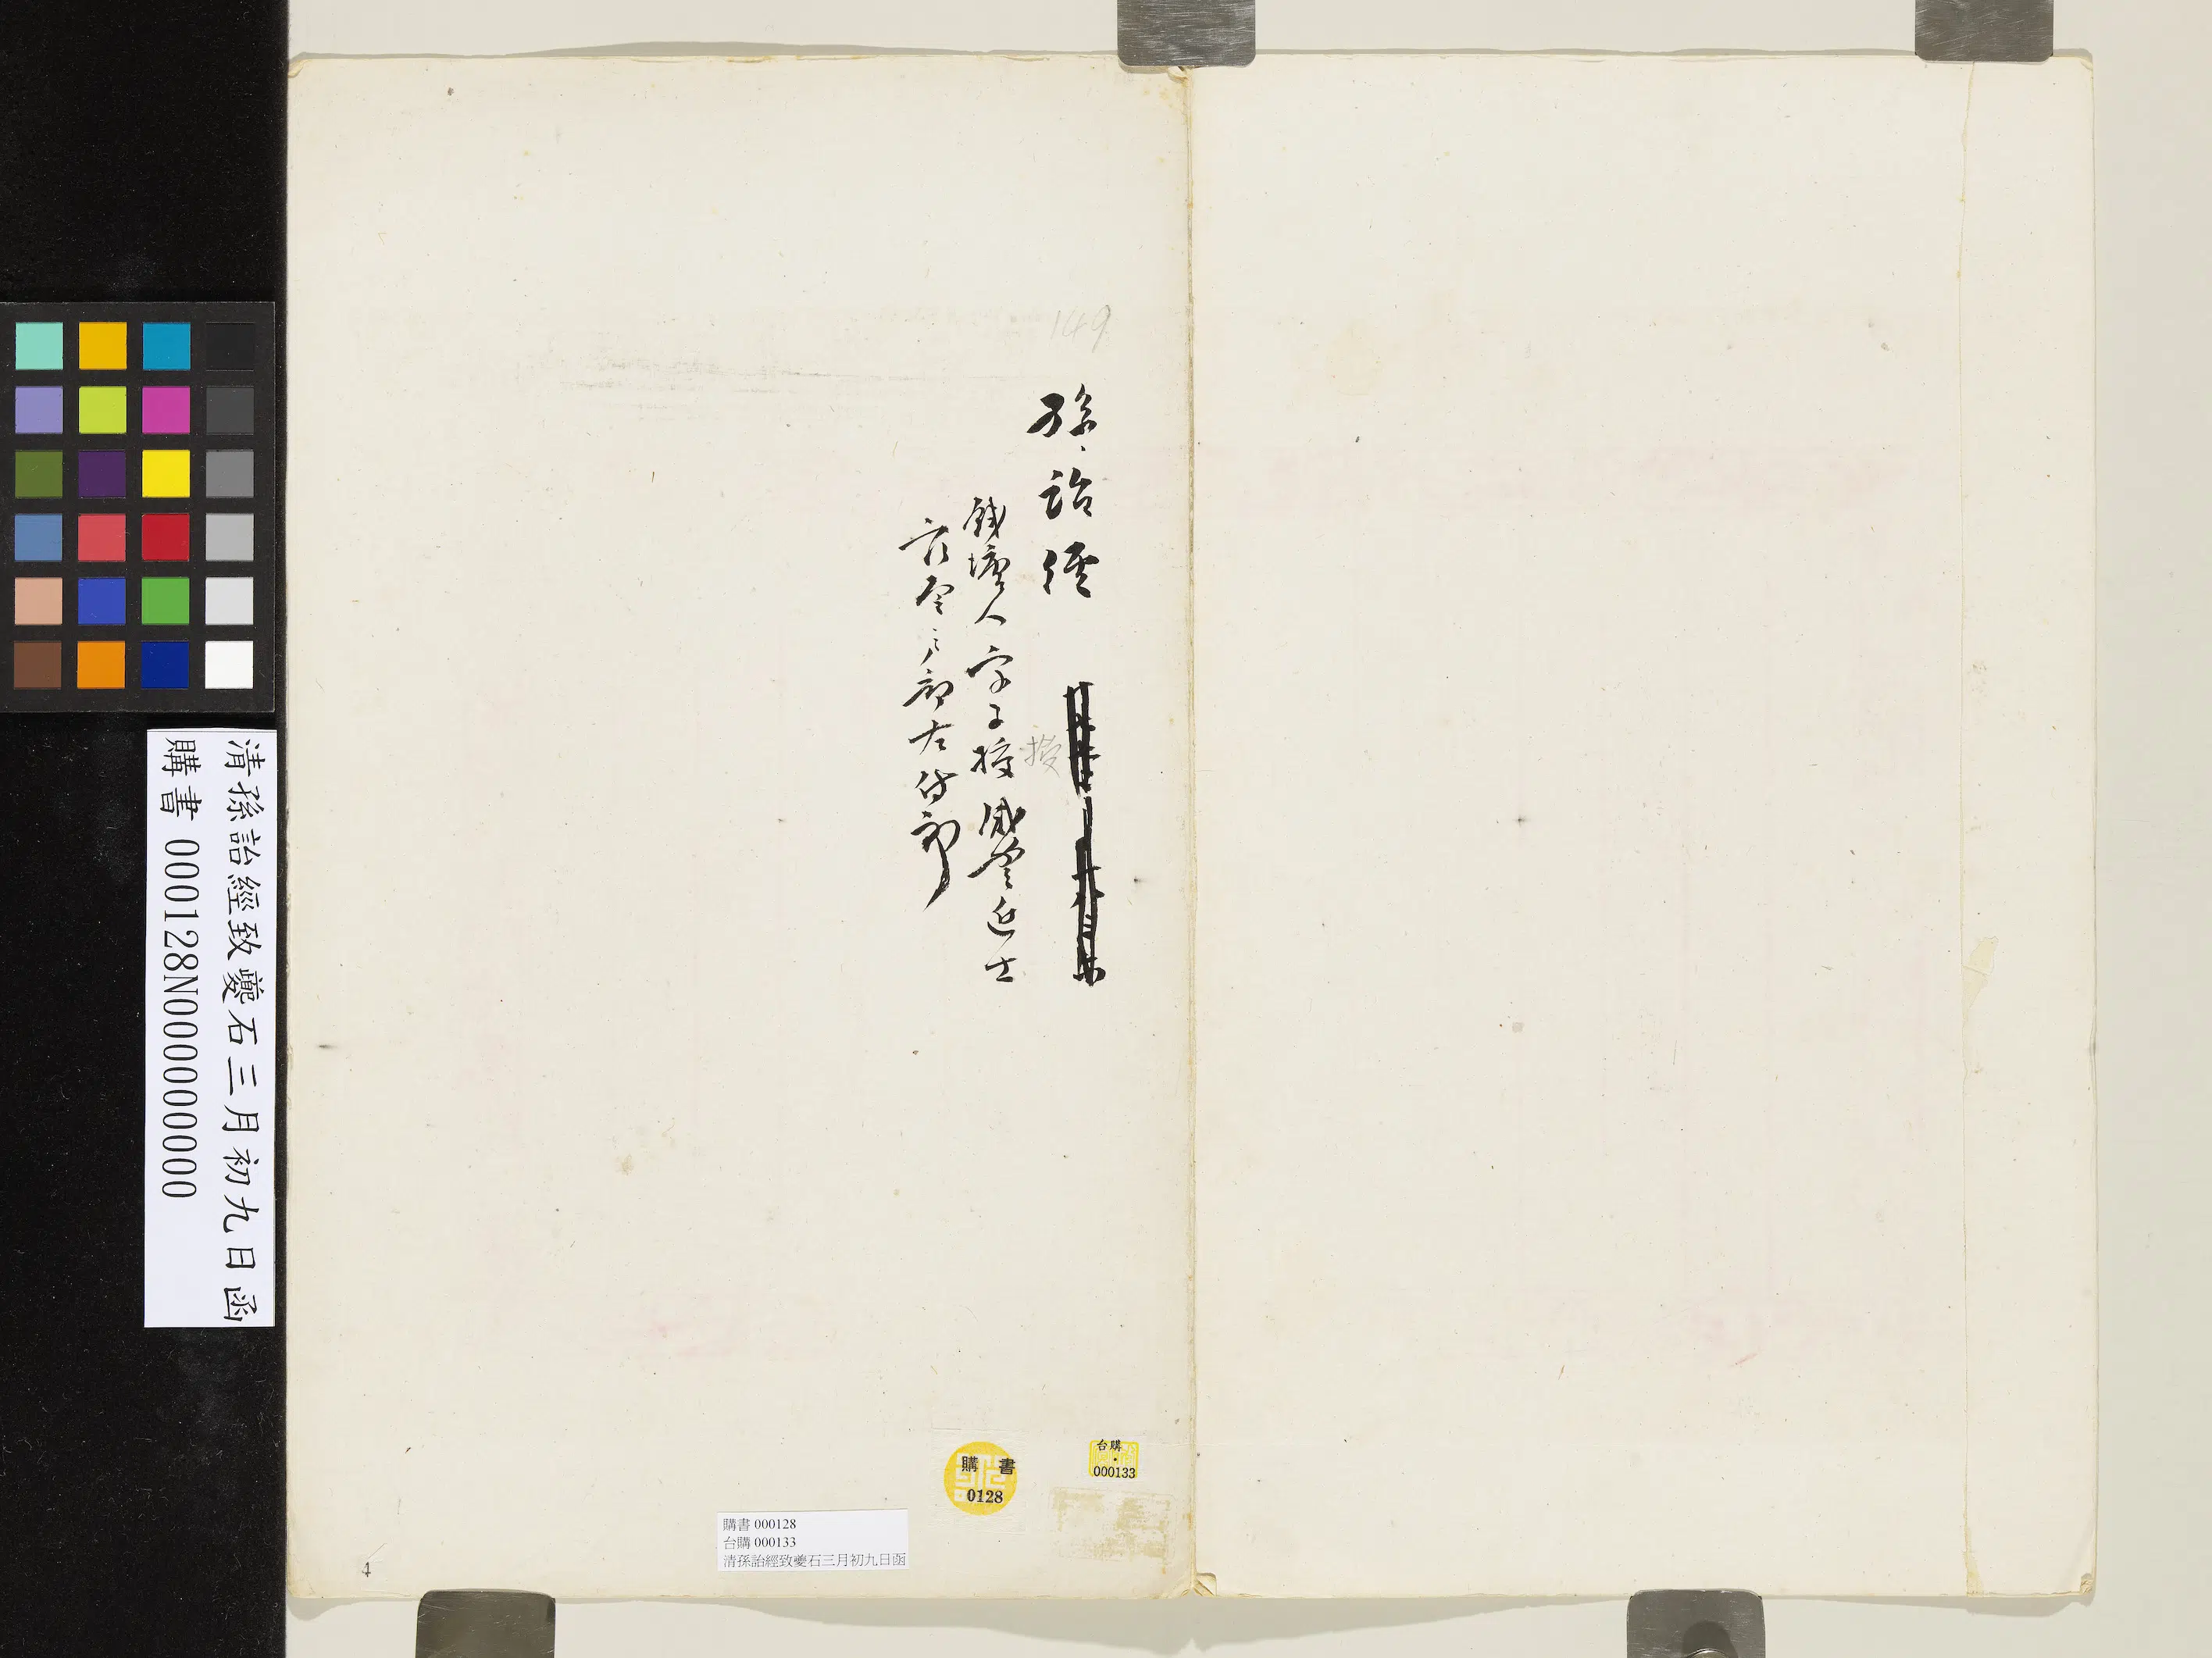 149
孫詒經
授
錢塘人字子授咸豐進士
官至戶部左侍郎
清孫詒經致夔石三月初九日函
購書 000128N000000000
台購
000133
購書
0128
購書 000128
台購 000133
清孫詒經致夔石三月初九日函